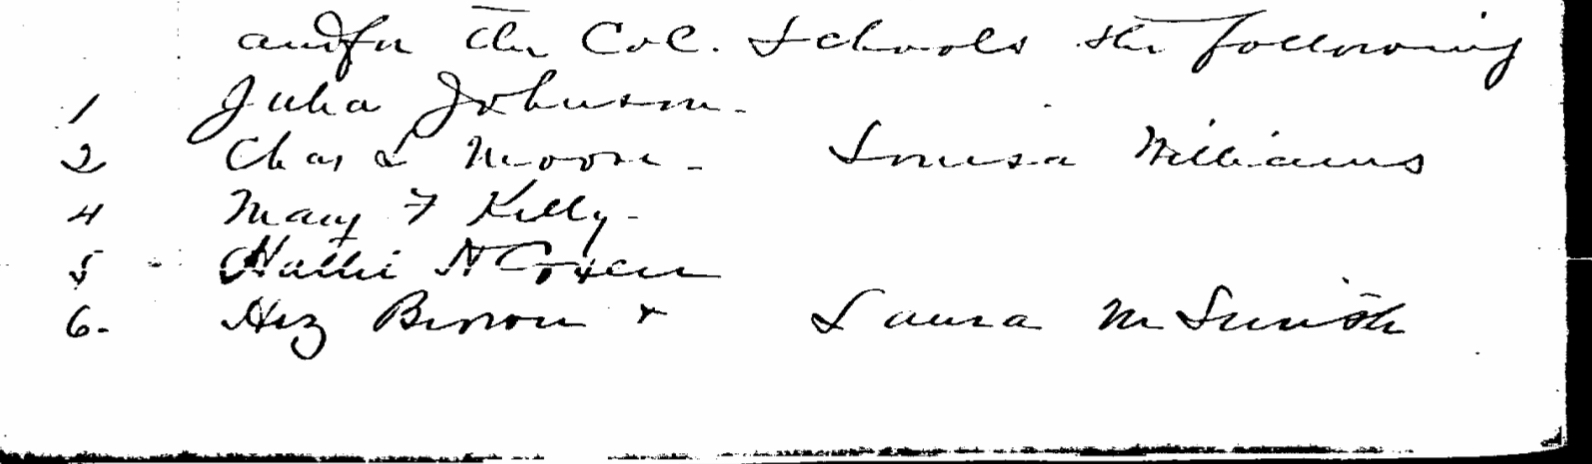 and for the Col. Schools the following
1 Julia Johnson -
2 Chas L Moore - Louisa Williams
4 Mary F Kelly -
5 Hattie N
6. Hez Brown & Laura M Smith